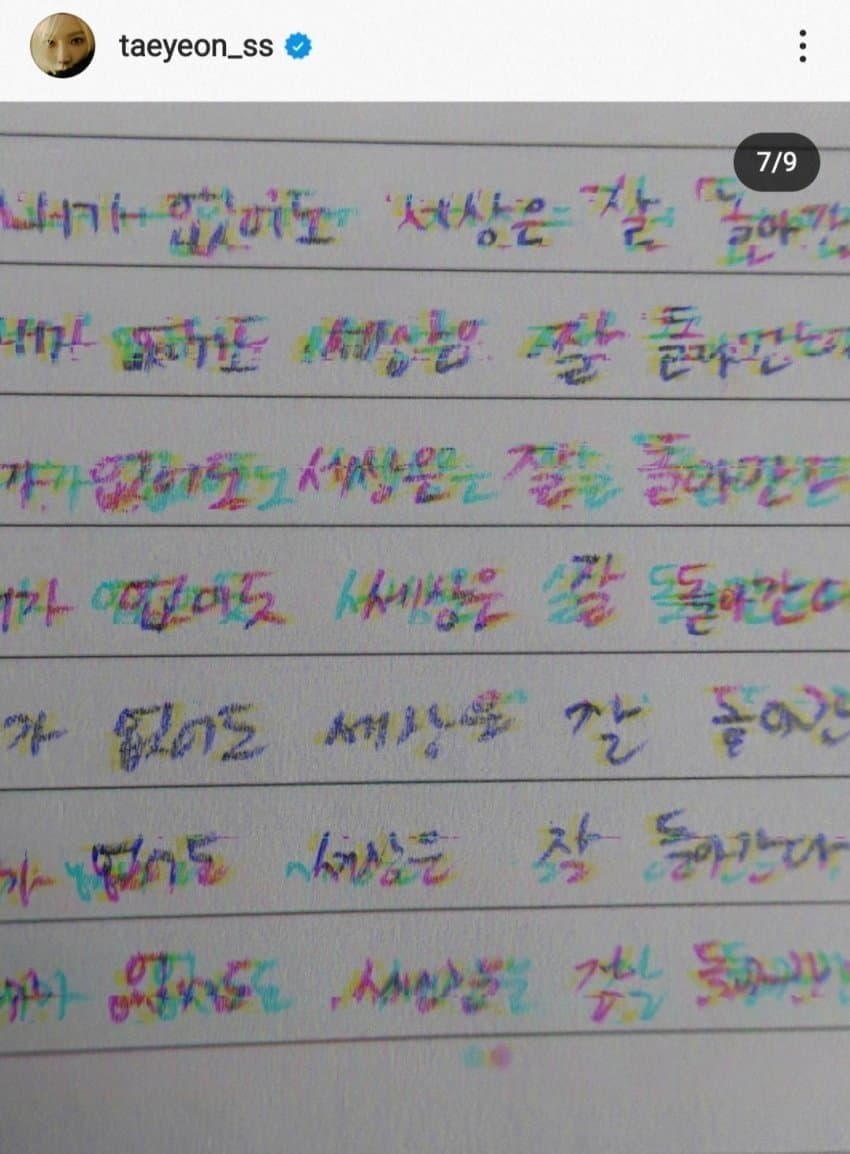 taeyeon_ss
7/9
없어도 세상은 잘 돌아간
없어도 세상은 잘 돌아간다
가 없어도 세상은 잘 돌아간다
가 없어도 세상은 잘 돌아간다
가 없어도 세상은 잘 돌아간
가 없어도 세상은 잘 돌아간다
가 없어도 세상은 잘 돌아간